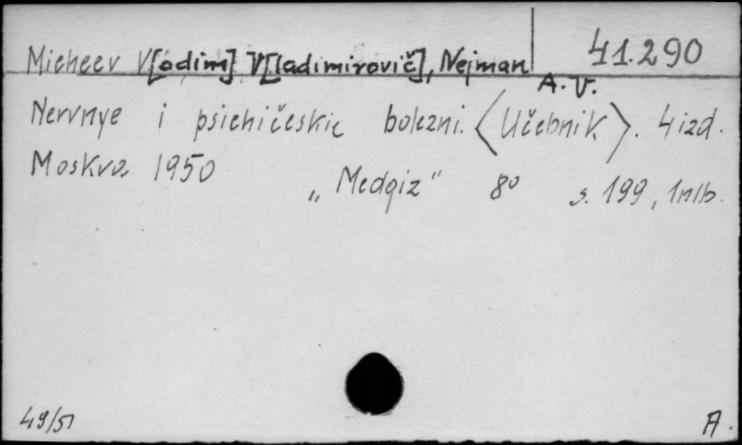 41.290
Micheev V[adim] V[ladimirovič], Nejman A.V.
Nervnye i psichičeskie bolezni. <Učebnik>. 4 izd.
Moskva 1950 „Medgiz" 8° s. 199, 1nlb.
49/51 A.